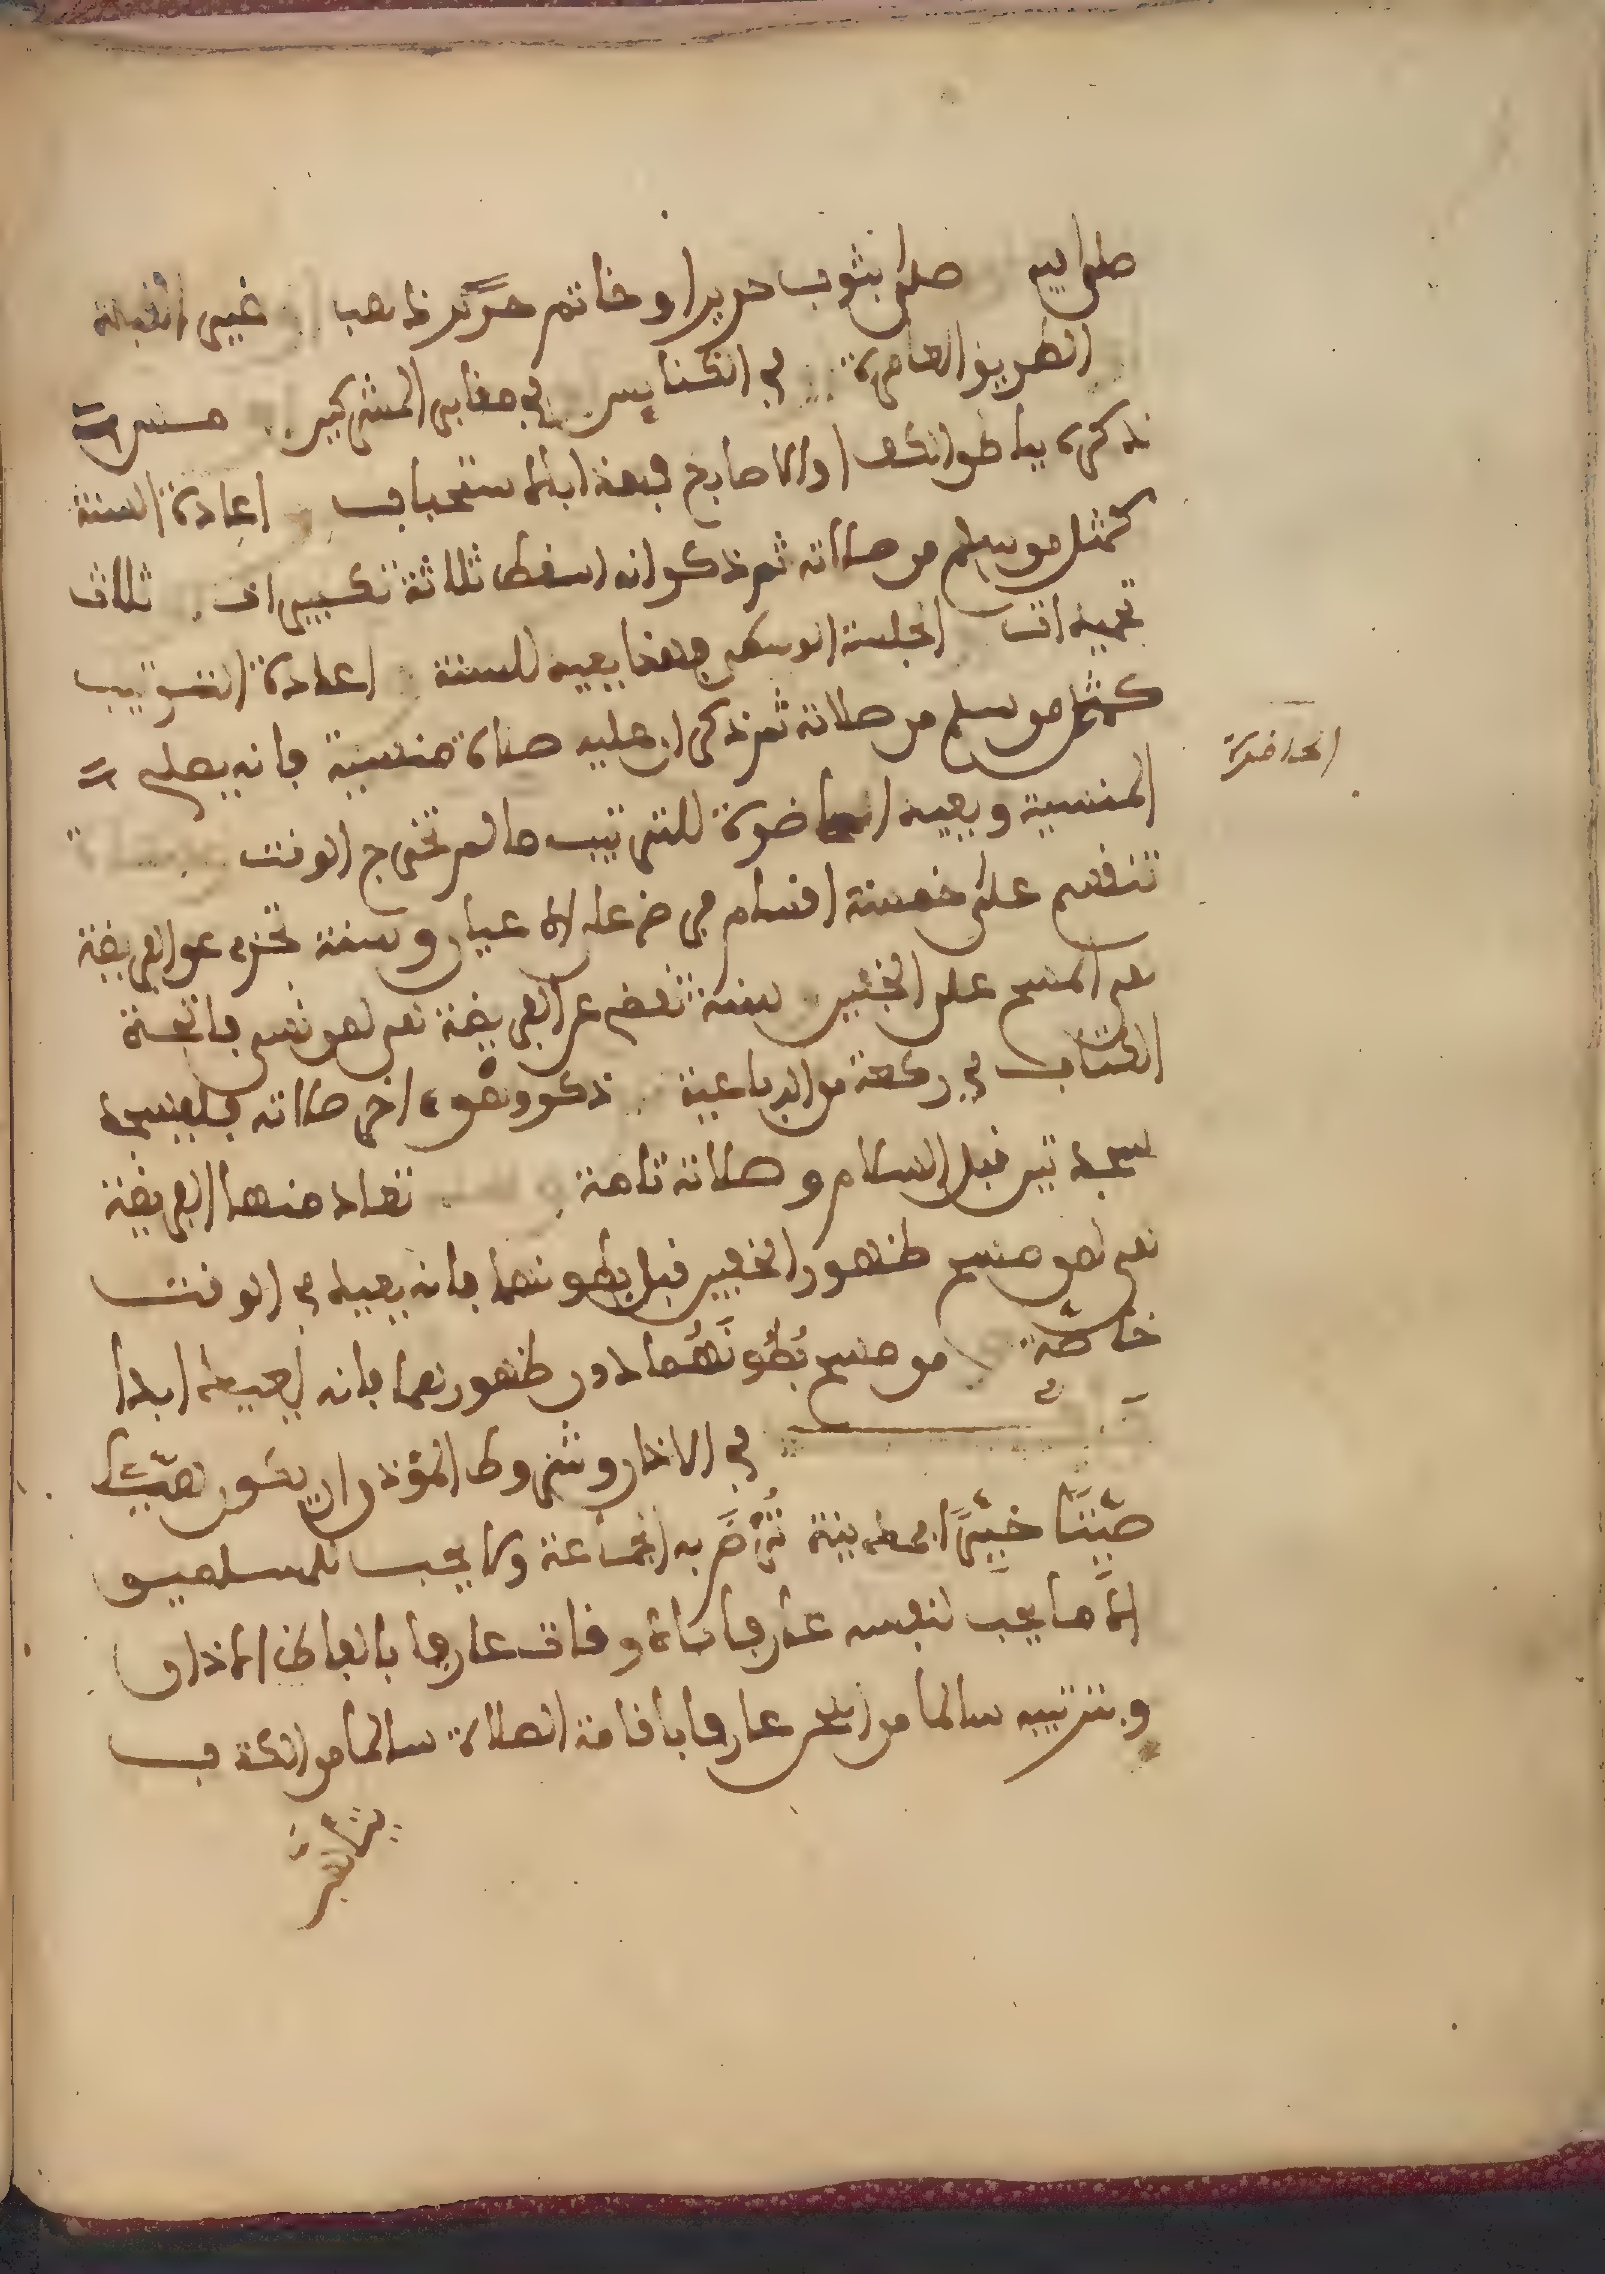 صلى بثوب حرير او خاتم ذهب غير القبلة
الطريق العامرة في الكنايس في مقابر المشركين مس
ذكره بباطن الكف او الاصابع فهذا استحباب اعادة السنة
كمثل من سلم من صلاته ثم ذكر انه اسقط ثلاثة تكبيرات ثلاث
تحميدات الجلسة الوسطى فهذا يعيد للسنة اعادة الترتيب
كمثل من سلم من صلاته ثم ذكر ان عليه صلاة منسية فانه يصلي
المنسية ويعيد الحاضرة للترتيب ما لم تخرج الوقت
الحاضرة
تنقسم على خمسة اقسام وسنة تجزء عن الفريضة
المسح على الخفين سنة عن الفريضة نعم لو نسى فاتحة
الكتاب في ركعة من الرباعية ذكر وهو في اخر صلاته فليسجد
سجدتين قبل السلام وصلاته تامة تعاد منها الفريضة
نعم لو مسح ظهور الخفين قبل بطونهما فانه يعيد في الوقت
خاصّة من مسح بُطُونَهُما دون ظهورهما فانه يعيد ابدا
في الاذان وشروط المؤذن ان يكون
صَيِّتًا به الجماعة ولا يحب للمسلمين
الا ما يحب لنفسه عارفا باوقات عارفا بالفاظ الاذان
وبترتيبه سالما من اللحن عارفا باقامة الصلاة سالما من الكذب